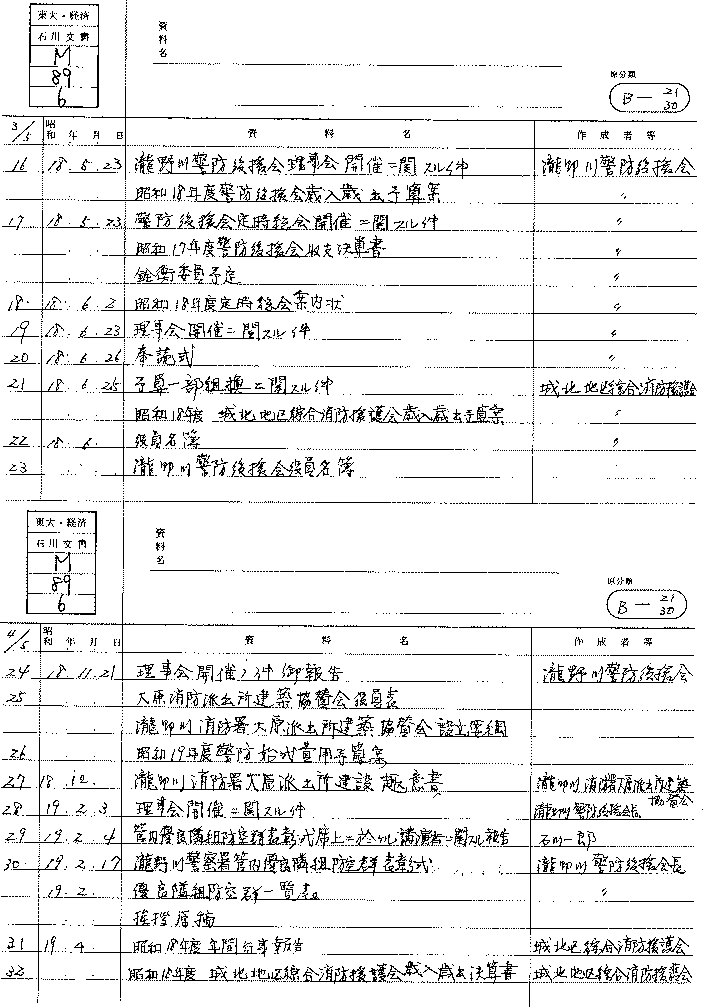 東大・経済
石川文書
M
89
6
資料名
原分類
B－21/30
3/5 昭和 年 月 日 資料名 作成者等
16 18.5.23 瀧野川警防後援会理事会開催ニ関スル件 瀧野川警防後援会
昭和18年度警防後援会歳入歳出予算案 〃
17 18.5.23 警防後援会定時総会開催ニ関スル件 〃
昭和17年度警防後援会収支決算書 〃
銓衡委員予定 〃
18 18.6.2 昭和18年度定時総会案内状 〃
19 18.6.23 理事会開催ニ関スル件 〃
20 18.6.26 奉読式 〃
21 18.6.25 予算一部組換ニ関スル件 城北地区綜合消防援護会
昭和18年度 城北地区綜合消防援護会歳入歳出予算案 〃
22 18.6. 役員名簿 〃
23 瀧野川警防後援会役員名簿
東大・経済
石川文書
M
89
6
資料名
原分類
B－21/30
4/5 昭和 年 月 日 資料名 作成者等
24 18.11.21 理事会開催ノ件御報告 瀧野川警防後援会
25 大原消防派出所建築協賛会役員表
瀧野川消防署大原派出所建築協賛会設立要綱
26 昭和19年度警防始式費用予算案
27 18.12. 瀧野川消防署大原派出所建設趣意書 瀧野川消防署大原派出所建築協賛会
28 19.2.3 理事会開催ニ関スル件 瀧野川警防後援会長
29 19.2.4 管内優良隣組防空群表彰式席上ニ於ケル講演者ニ関スル報告 石川一郎
30 19.2.17 瀧野川警察署管内優良隣組防空群表彰式 瀧野川警防後援会長
19.2. 優良隣組防空群一覧表 〃
挨拶原稿
31 19.4 昭和18年度年間行事報告 城北地区綜合消防援護会
32 昭和18年度 城北地区綜合消防援護会歳入歳出決算書 城北地区綜合消防援護会